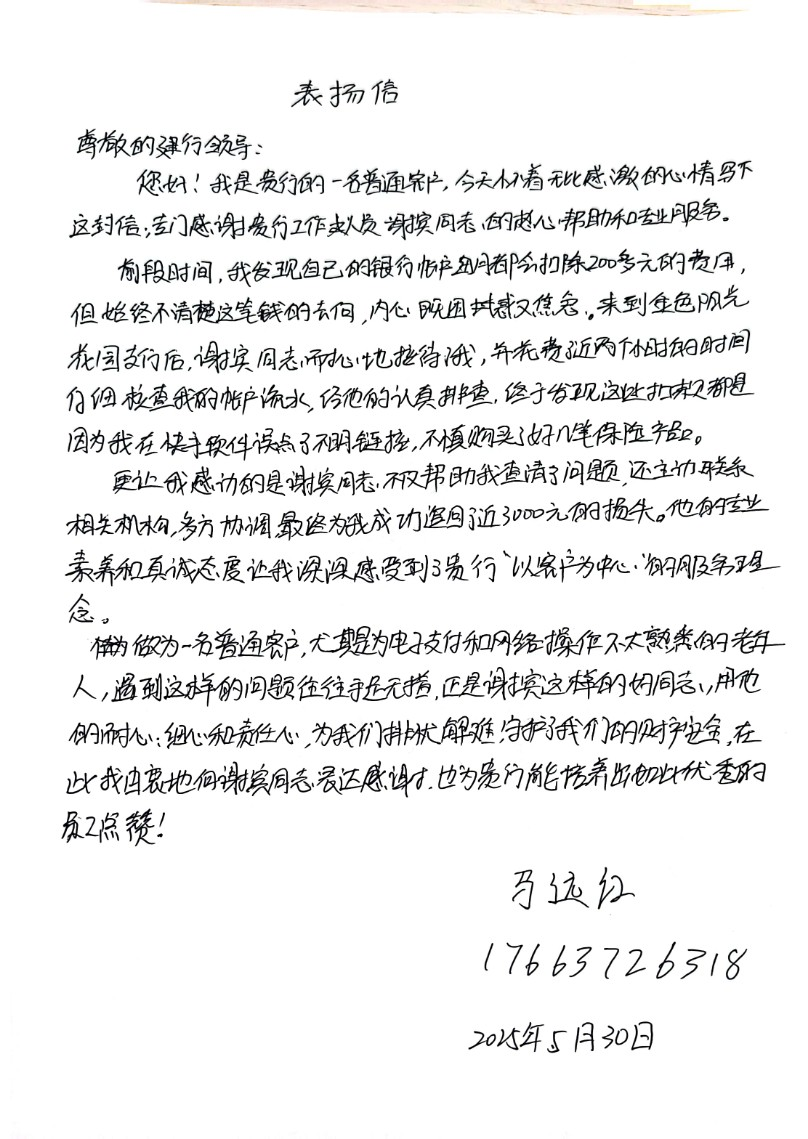 表扬信
尊敬的建行领导：
您好！我是贵行的一名普通客户，今天怀着无比感激的心情写下
这封信，专门感谢贵行工作人员谢宾同志的热心帮助和专业服务。
前段时间，我发现自己的银行帐户每月都会扣除200多元的费用，
但始终不清楚这笔钱的去向，内心既困惑又焦急。来到金色阳光
花园支行后，谢宾同志耐心地接待了我，并花费了近两个小时的时间
仔细检查我的帐户流水，经他的认真排查，终于发现这些扣款都是
因为我在快手软件误点了不明链接，不慎购买了好几笔保险产品。
更让我感动的是谢宾同志不仅帮助我查清了问题，还主动联系
相关机构，多方协调，最终为我成功追回了近3000元的损失。他的专业
素养和真诚态度让我深深感受到了贵行“以客户为中心”的服务理
念。
做为一名普通客户，尤其是为电子支付和网络操作不太熟悉的老年
人，遇到这样的问题往往手足无措，正是谢宾这样的好同志，用他
的耐心，细心和责任心，为我们排忧解难，守护了我们的财产安全，在
此我由衷地向谢宾同志表达感谢，也为贵行能培养出如此优秀的
员工点赞！
马远红
17663726318
2025年5月30日